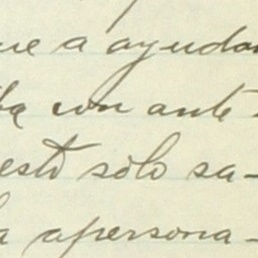 ue a ayudar
con ante-
esto sólo sa-
a apersona-